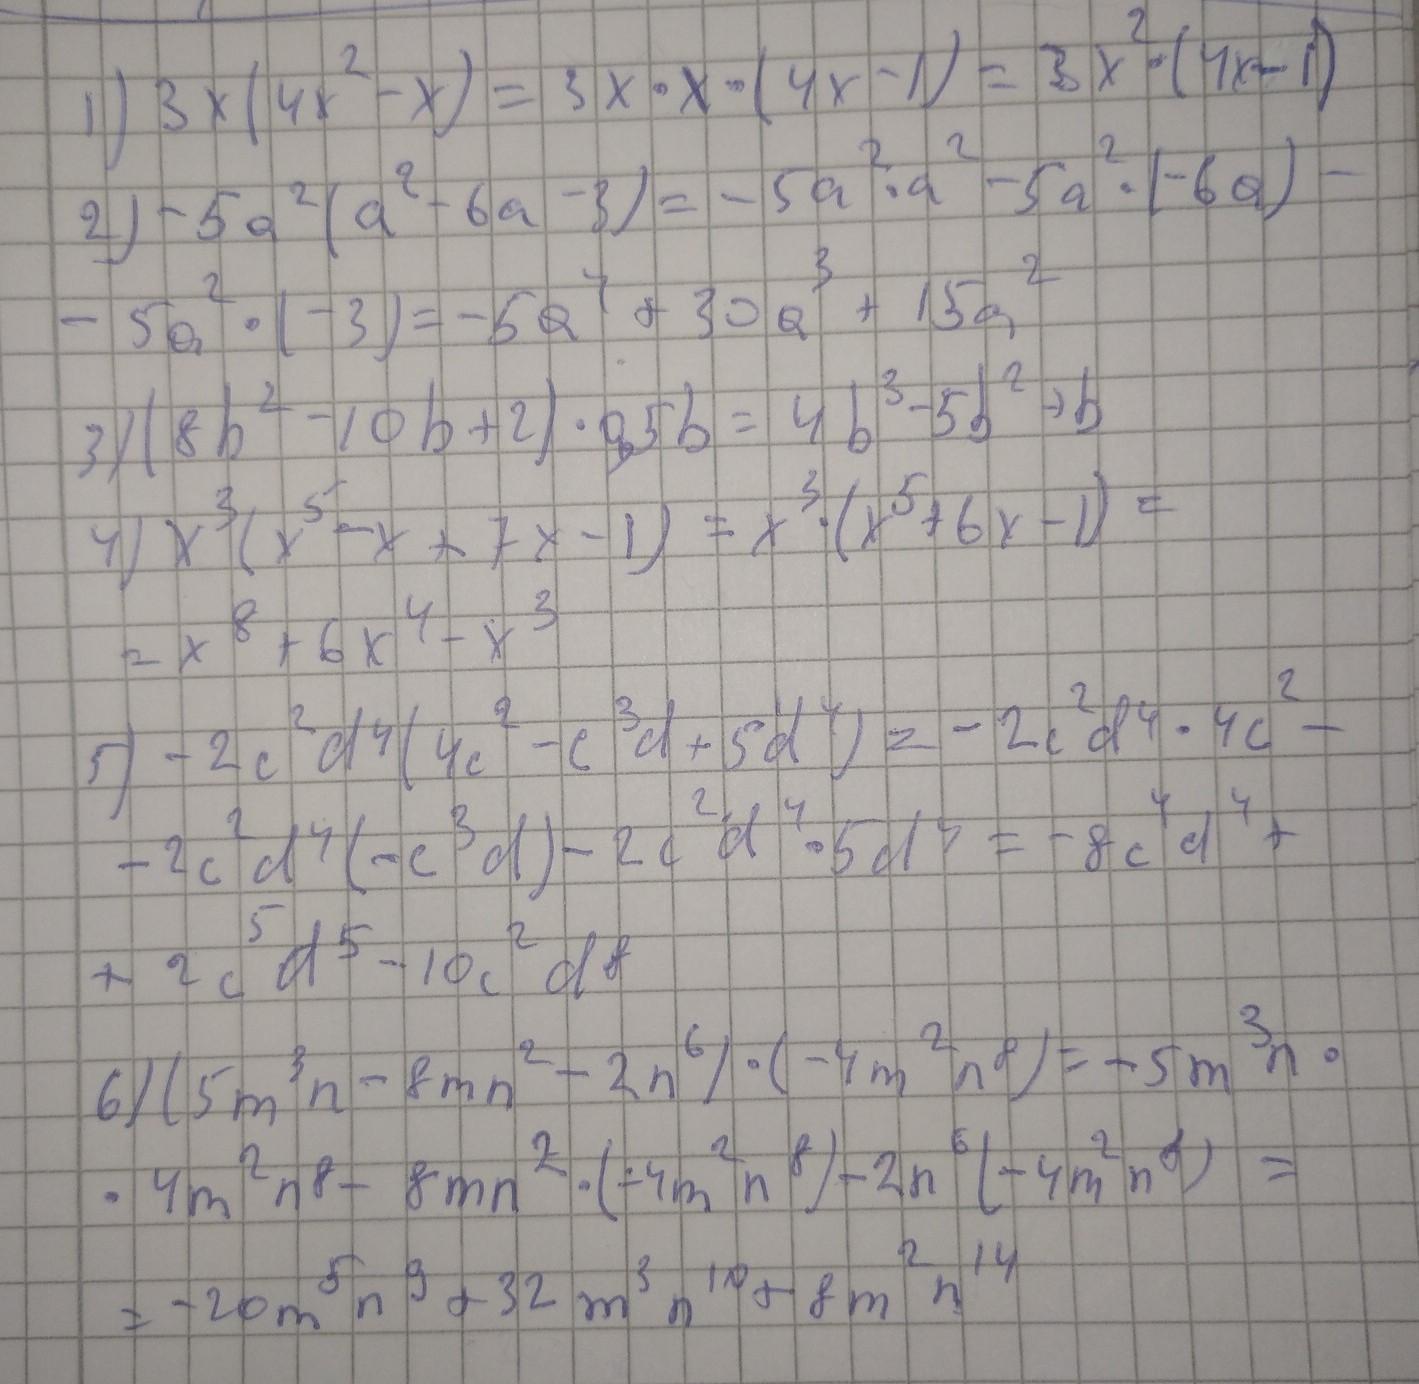 1) 3x(4x² - x) = 3x·x·(4x - 1) = 3x²·(4x - 1)
2) -5a²(a² - 6a - 3) = -5a²·a² - 5a²·(-6a) -
- 5a²·(-3) = -5a⁴ + 30a³ + 15a²
3) (8b² - 10b + 2)·0,5b = 4b³ - 5b² + b
4) x³(x⁵ - x + 7x - 1) = x³·(x⁵ + 6x - 1) =
= x⁸ + 6x⁴ - x³
5) -2c²d⁴(4c² - c³d + 5d⁴) = -2c²d⁴·4c² -
- 2c²d⁴(-c³d) - 2c²d⁴·5d⁴ = -8c⁴d⁴ +
+ 2c⁵d⁵ - 10c²d⁸
6) (5m³n - 8mn² - 2n⁶)·(-4m²n⁸) = -5m³n·
·4m²n⁸ - 8mn²·(-4m²n⁸) - 2n⁶(-4m²n⁸) =
= -20m⁵n⁹ + 32m³n¹⁰ + 8m²n¹⁴